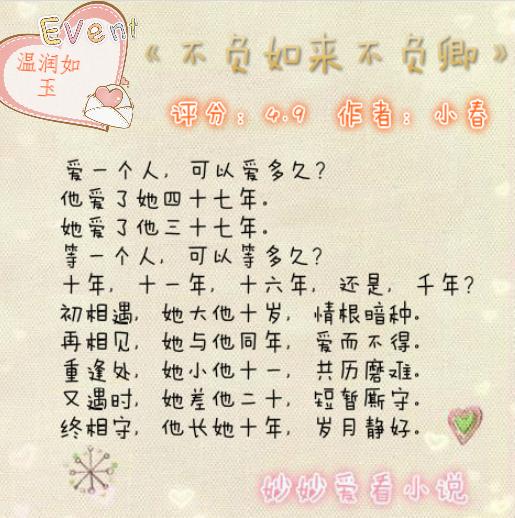 Event
温润如
玉
《不负如来不负卿》
评分：4.9 作者：小春
爱一个人，可以爱多久？
他爱了她四十七年。
她爱了他三十七年。
等一个人，可以等多久？
十年，十一年，十六年，还是，千年？
初相遇，她大他十岁，情根暗种。
再相见，她与他同年，爱而不得。
重逢处，她小他十一，共历磨难。
又遇时，她差他二十，短暂厮守。
终相守，他长她十年，岁月静好。
妙妙爱看小说